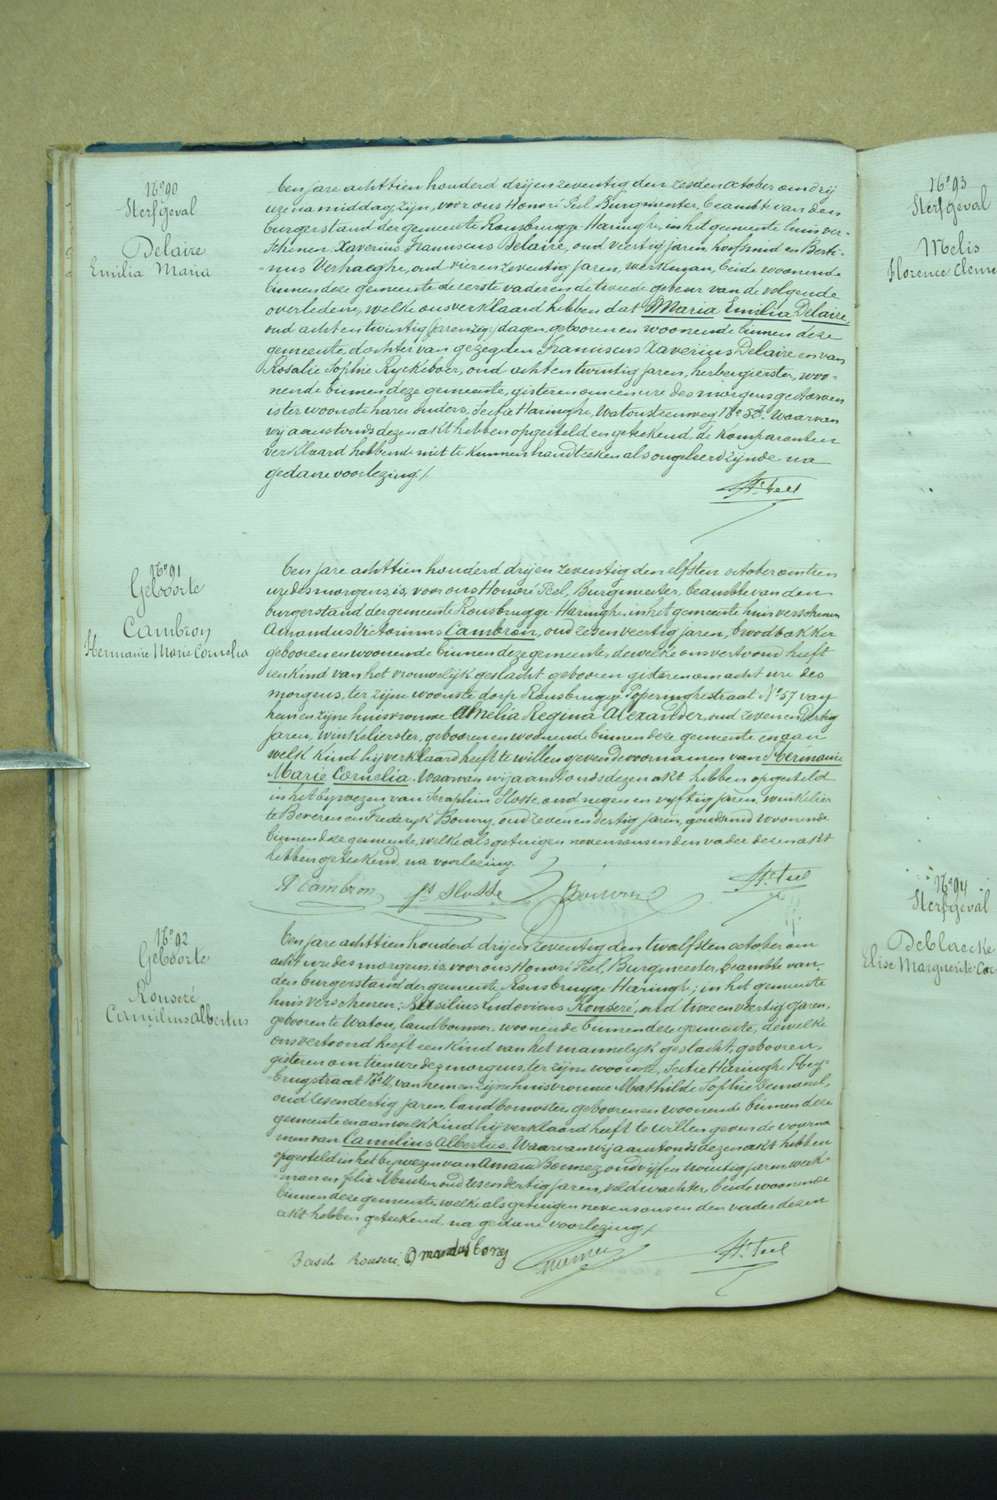 N° 90
Sterfgeval
Delaire
Emilia Maria
Een jare achttien honderd drij en zeventig den zesden october om drij
ure na middag zijn, voor ons Honoré Feel Burgmeester, beambte van den
burgerstand der gemeente Rousbrugge-Haringhe, in het gemeente huis ver-
schenen Xaverius Franciscus Delaire, oud veertig jaren, hoefsmid en Berti-
nus Verhaeghe, oud vier en zeventig jaren, werkman, beide woonende
binnen deze gemeente de eerste vader en de tweede gebuur van de volgende
overledene, welke ons verklaard hebben dat Maria Emilia Delaire,
oud acht en twintig dagen, geboren en woonende binnen deze
gemeente, dochter van gezegden Franciscus Xaverius Delaire en van
Rosalie Sophie Ryckeboer, oud acht en twintig jaren, herbergierster, woo-
nende binnen deze gemeente, gisteren om een ure des morgens gestorven
is ter woonste harer ouders, Sectie Haringhe, Watousteenweg N° 53. Waarvan
wij aanstonds dezen akt hebben opgesteld en geteekend. De komparanten
verklaard hebbende niet te kunnen handteeken als ongeleerd zijnde na
gedane voorlezing./
H. Feel
N° 91
Geboorte
Cambron
Hermanie Marie Cornelia
Een jare achttien honderd drij en zeventig den elfsten october om tien
ure des morgens, is, voor ons Honoré Feel, Burgmeester, beambte van den
burgerstand der gemeente Rousbrugge Haringhe in het gemeente huis verschenen
Amandus Victorinus Cambron, oud zes en veertig jaren, broodbakker
geboren en woonende binnen deze gemeente, dewelke ons vertoond heeft
een kind van het vrouwelijk geslacht geboren gisteren om acht ure des
morgens, ter zijne woonste dorp Rousbrugge Poperinghestraat N° 57 van
hem en zijne huisvrouwe Amelia Regina Alexander, oud zeven en dertig
jaren, winkelierster, geboren en woonende binnen deze gemeente en aan
welk kind hij verklaard heeft te willen geven de voornamen van Hermanie
Marie Cornelia. Waarvan wij aanstonds dezen akt hebben opgesteld
in het bijwezen van Seraphin Slosse, oud negen en vijftig jaren, winkelier
te Beveren en Frederyk Bouvry, oud zeven en dertig jaren, goudsmid woonende
binnen deze gemeente, welke als getuigen nevens ons en den vader dezen akt
hebben geteekend na voorlezing.
A Cambron S. Slosse Bouvry H. Feel
N° 92
Geboorte
Rouseré
Camilius Albertus
Een jare achttien honderd drij en zeventig den twalfsten october om
acht ure des morgens, is voor ons Honoré Feel, Burgmeester, beambte van
den burgerstand der gemeente Rousbrugge Haringhe, in het gemeente
huis verschenen: Basilius Ludovicus Rouseré, oud twee en veertig jaren,
geboren te Watou, landbouwer, woonende binnen deze gemeente, dewelke
ons vertoond heeft een kind van het mannelijk geslacht, geboren,
gisteren om tien ure des morgens, ter zijne woonste, Sectie Haringhe
brugstraat N° 4, van hem en zijne huisvrouwe Mathilde Sophie
oud zes en dertig jaren, landbouwster, geboren en woonende binnen deze
gemeente en aan welk kind hij verklaard heeft te willen geven de voorna
men van Camilius Albertus. Waarvan wij aanstonds dezen akt hebben
opgesteld in het bijwezen van Amand oud vijf en twintig jaren, werk-
man en Felix oud zes en dertig jaren, veldwachter, beide woonende
binnen deze gemeente, welke als getuigen nevens ons en den vader dezen
akt hebben geteekend na gedane voorlezing./
Basile Rouseré. H. Feel
N° 93
Sterfgeval
Melis
Florence Cleme
N° 94
Sterfgeval
DeBlaecke
Elise Marguerite Cor